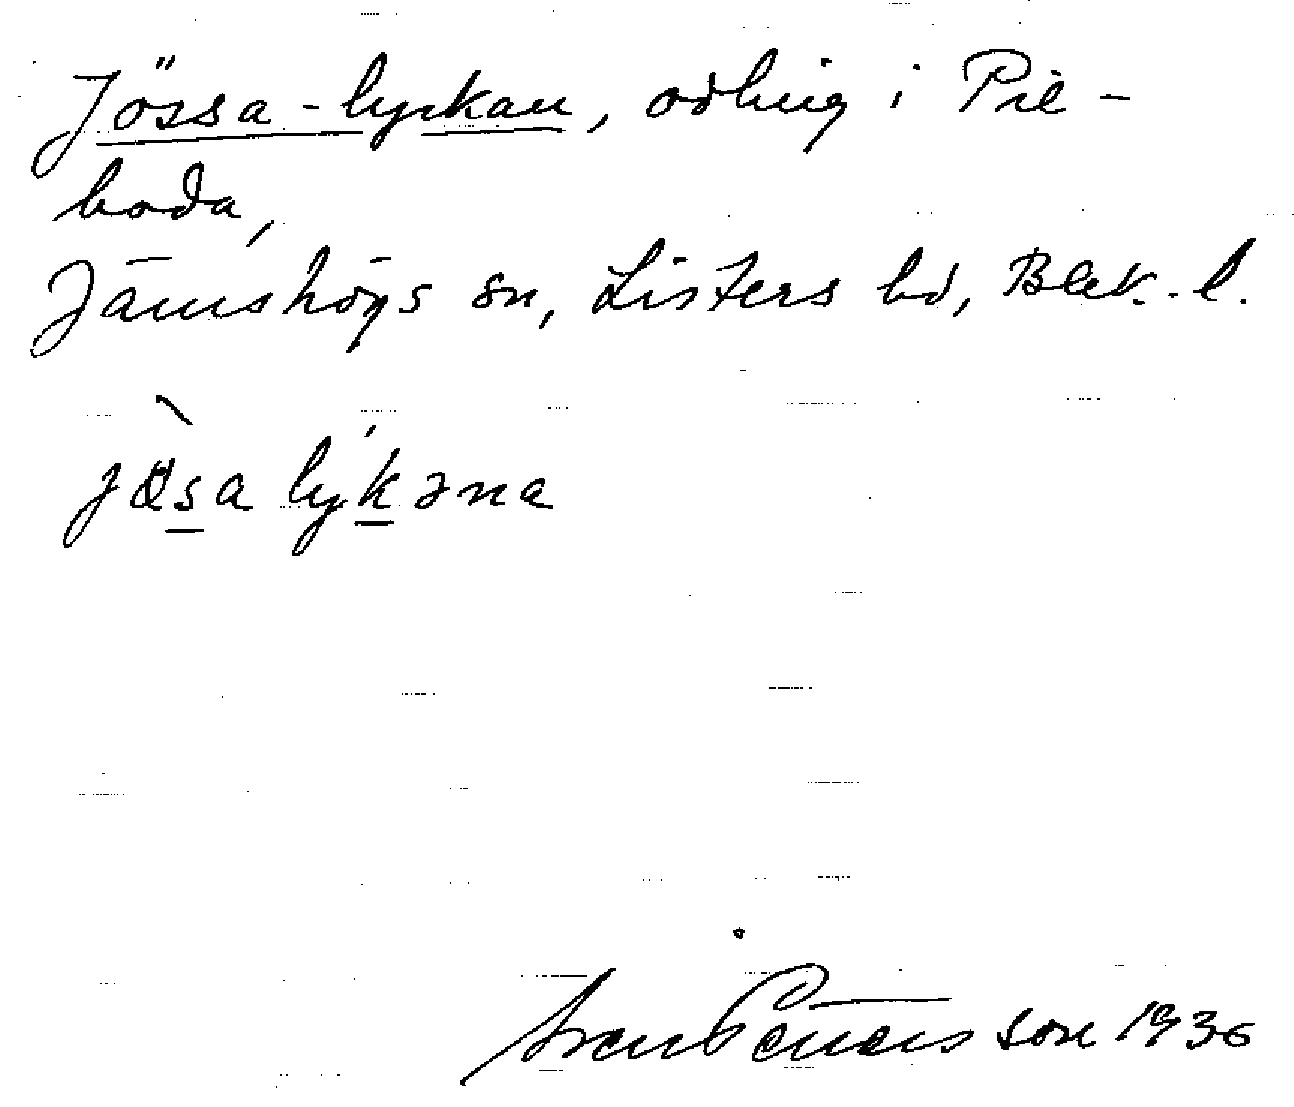 Jössa-lyckan, odling i Pil-
boda,
Jämshögs sn, Listers hd, Blek. l.
jösa lykəna
Sven Benson 1936